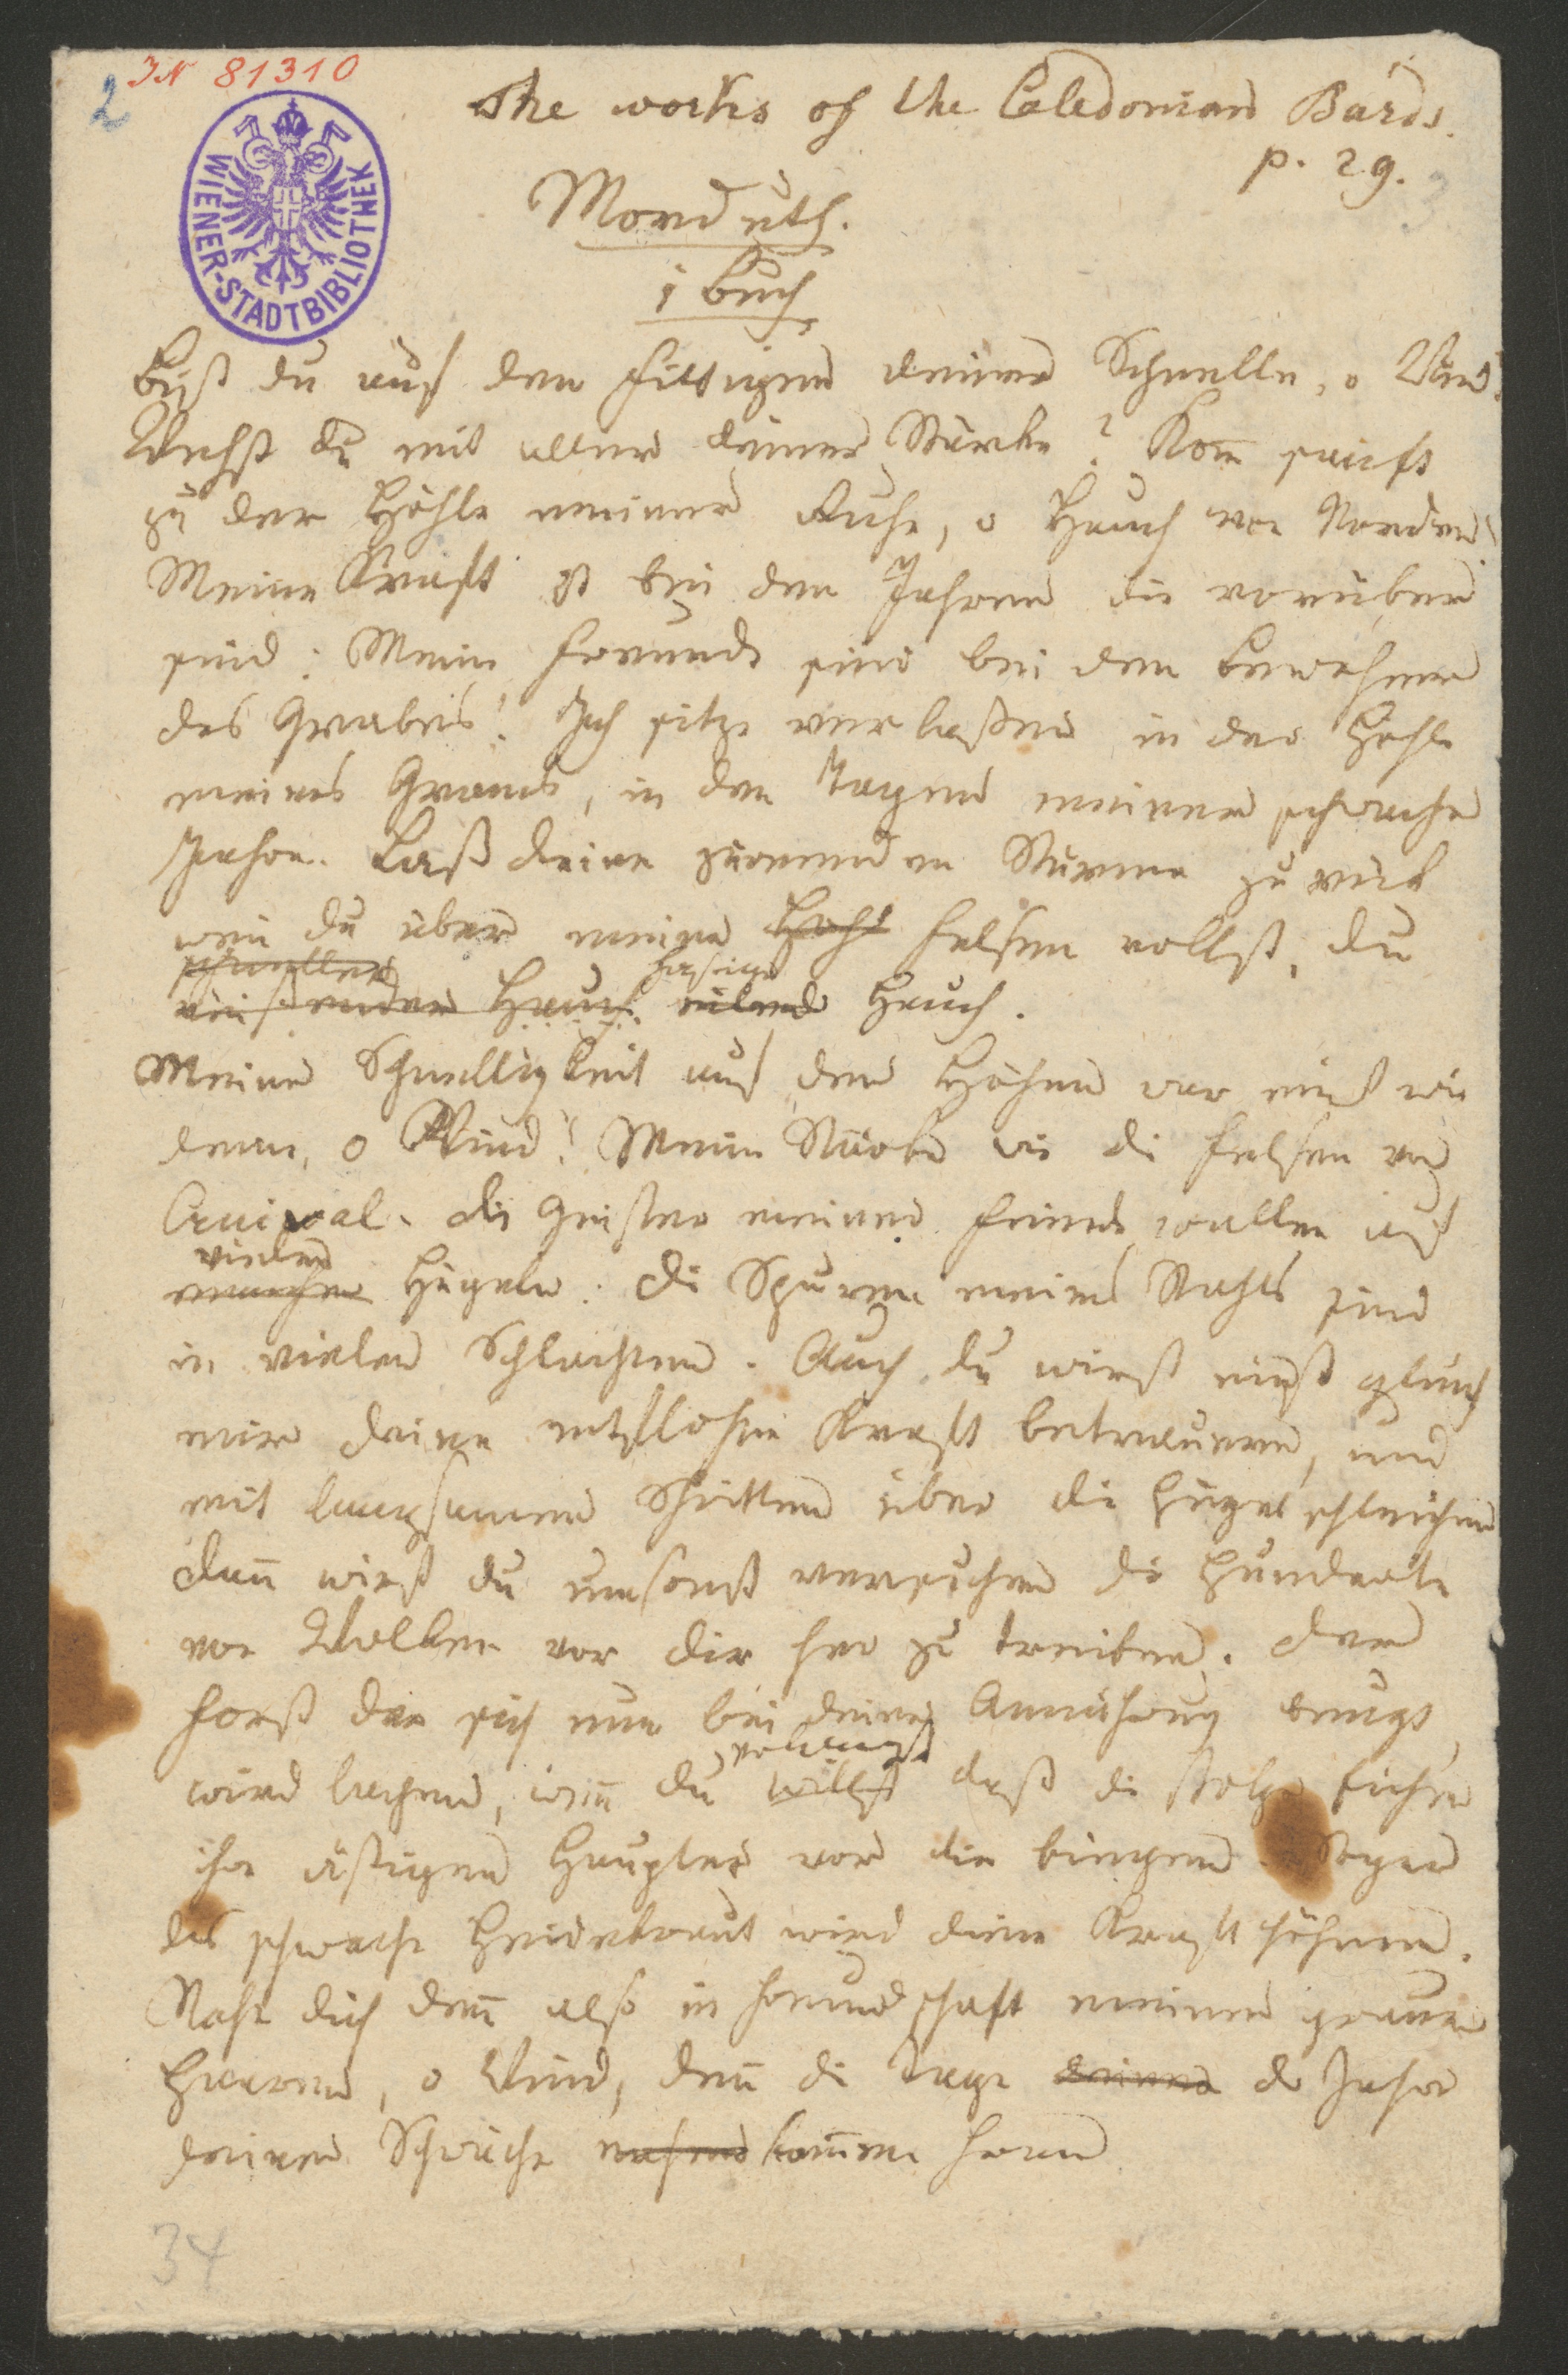 JN 81310
2
The works of the Caledonian Bards.
p. 29.
3
WIENER-STADTBIBLIOTHEK
Morduth.
1 Buch
Bist du auf den Fittigen deiner Schnelle, o Wind?
Wehst du mit aller deiner Stärke? Kom̄ sanft
zu der Höhle meiner Ruhe, o Hauch von Norden!
Meine Kraft ist bei den Jahren die vorüber
sind: Meine Freunde sind bei den Bewohnern
des Grabes! Ich sitze verlassen in der Höhle
meines Grams, in den Tagen meiner schwachen
Jahre. Laß deine zürnenden Stürme zurück
wen̄ du über meine Höhl Felsen rollst, du
schneller
reissender Hauch. eilend Hauch.
Meine Schnelligkeit auf den Höhen war einst wie
deine, o Wind! Meine Stärke wie die Felsen von
Cruival. Die Geister meiner Feinde wallen auf
vielen
manchen Hügeln: Die Spuren meines Stahls sind
in vielen Schlachten. Auch du wirst einst gleich
mir deine entflohne Kraft betrauern, und
mit langsamen Schritten über die Hügel schleichen
dan̄ wirst du umsonst versuchen die Hunderte
von Wolken vor dir her zu treiben. Der
Forst der sich nun bei deiner Annährung beugt
verlangst
wird lachen, wen̄ du willst daß die stolze Fichte
ihre ästigen Häupter vor dir biegen. Sogar
das schwache Heidekraut wird deine Kraft höhnen.
Nahe dich den̄ also in Freundschaft meinen grauen
Haaren, o Wind, den̄ die Tage deiner der Jahre
deiner Schwäche nahend kom̄en heran
34